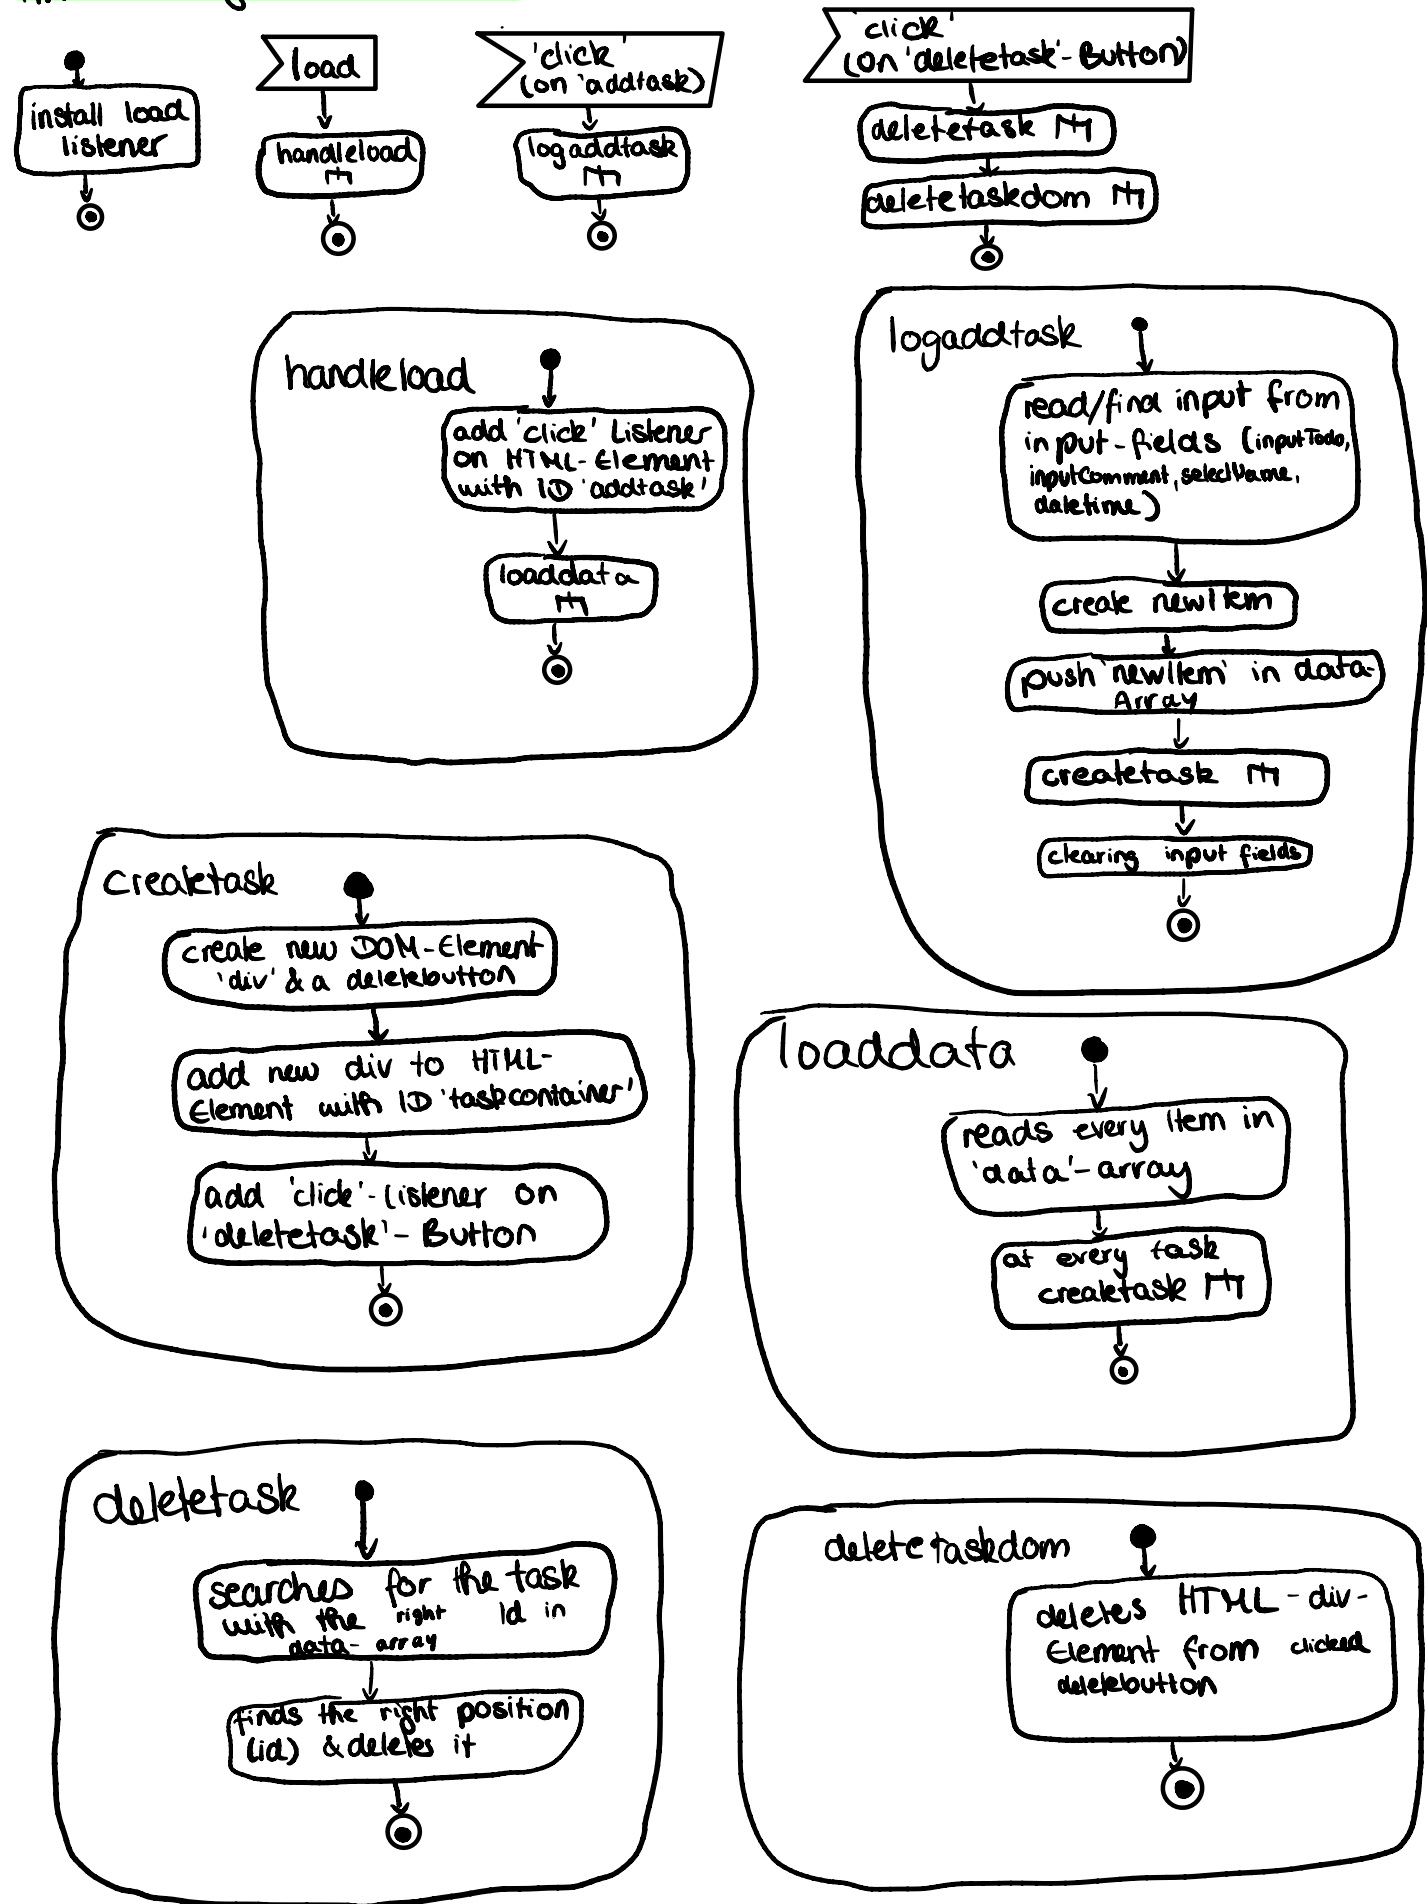 install load
listener
load
handleload
'click'
(on 'addtask)
logaddtask
'click'
(on 'deletetask'-Button)
deletetask
deletetaskdom
handleload
add 'click' Listener
on HTML-Element
with ID 'addtask'
loaddata
logaddtask
read/find input from
input-fields (inputTodo,
inputComment, selectName,
datetime)
create newItem
push 'newItem' in data-
Array
createtask
clearing input fields
createtask
create new DOM-Element
'div' & a deletebutton
add new div to HTML-
Element with ID 'taskcontainer'
add 'click'-Listener on
'deletetask'-Button
loaddata
reads every item in
'data'-array
at every task
createtask
deletetask
searches for the task
with the right Id in
data-array
finds the right position
(id) & deletes it
deletetaskdom
deletes HTML-div-
Element from clicked
deletebutton